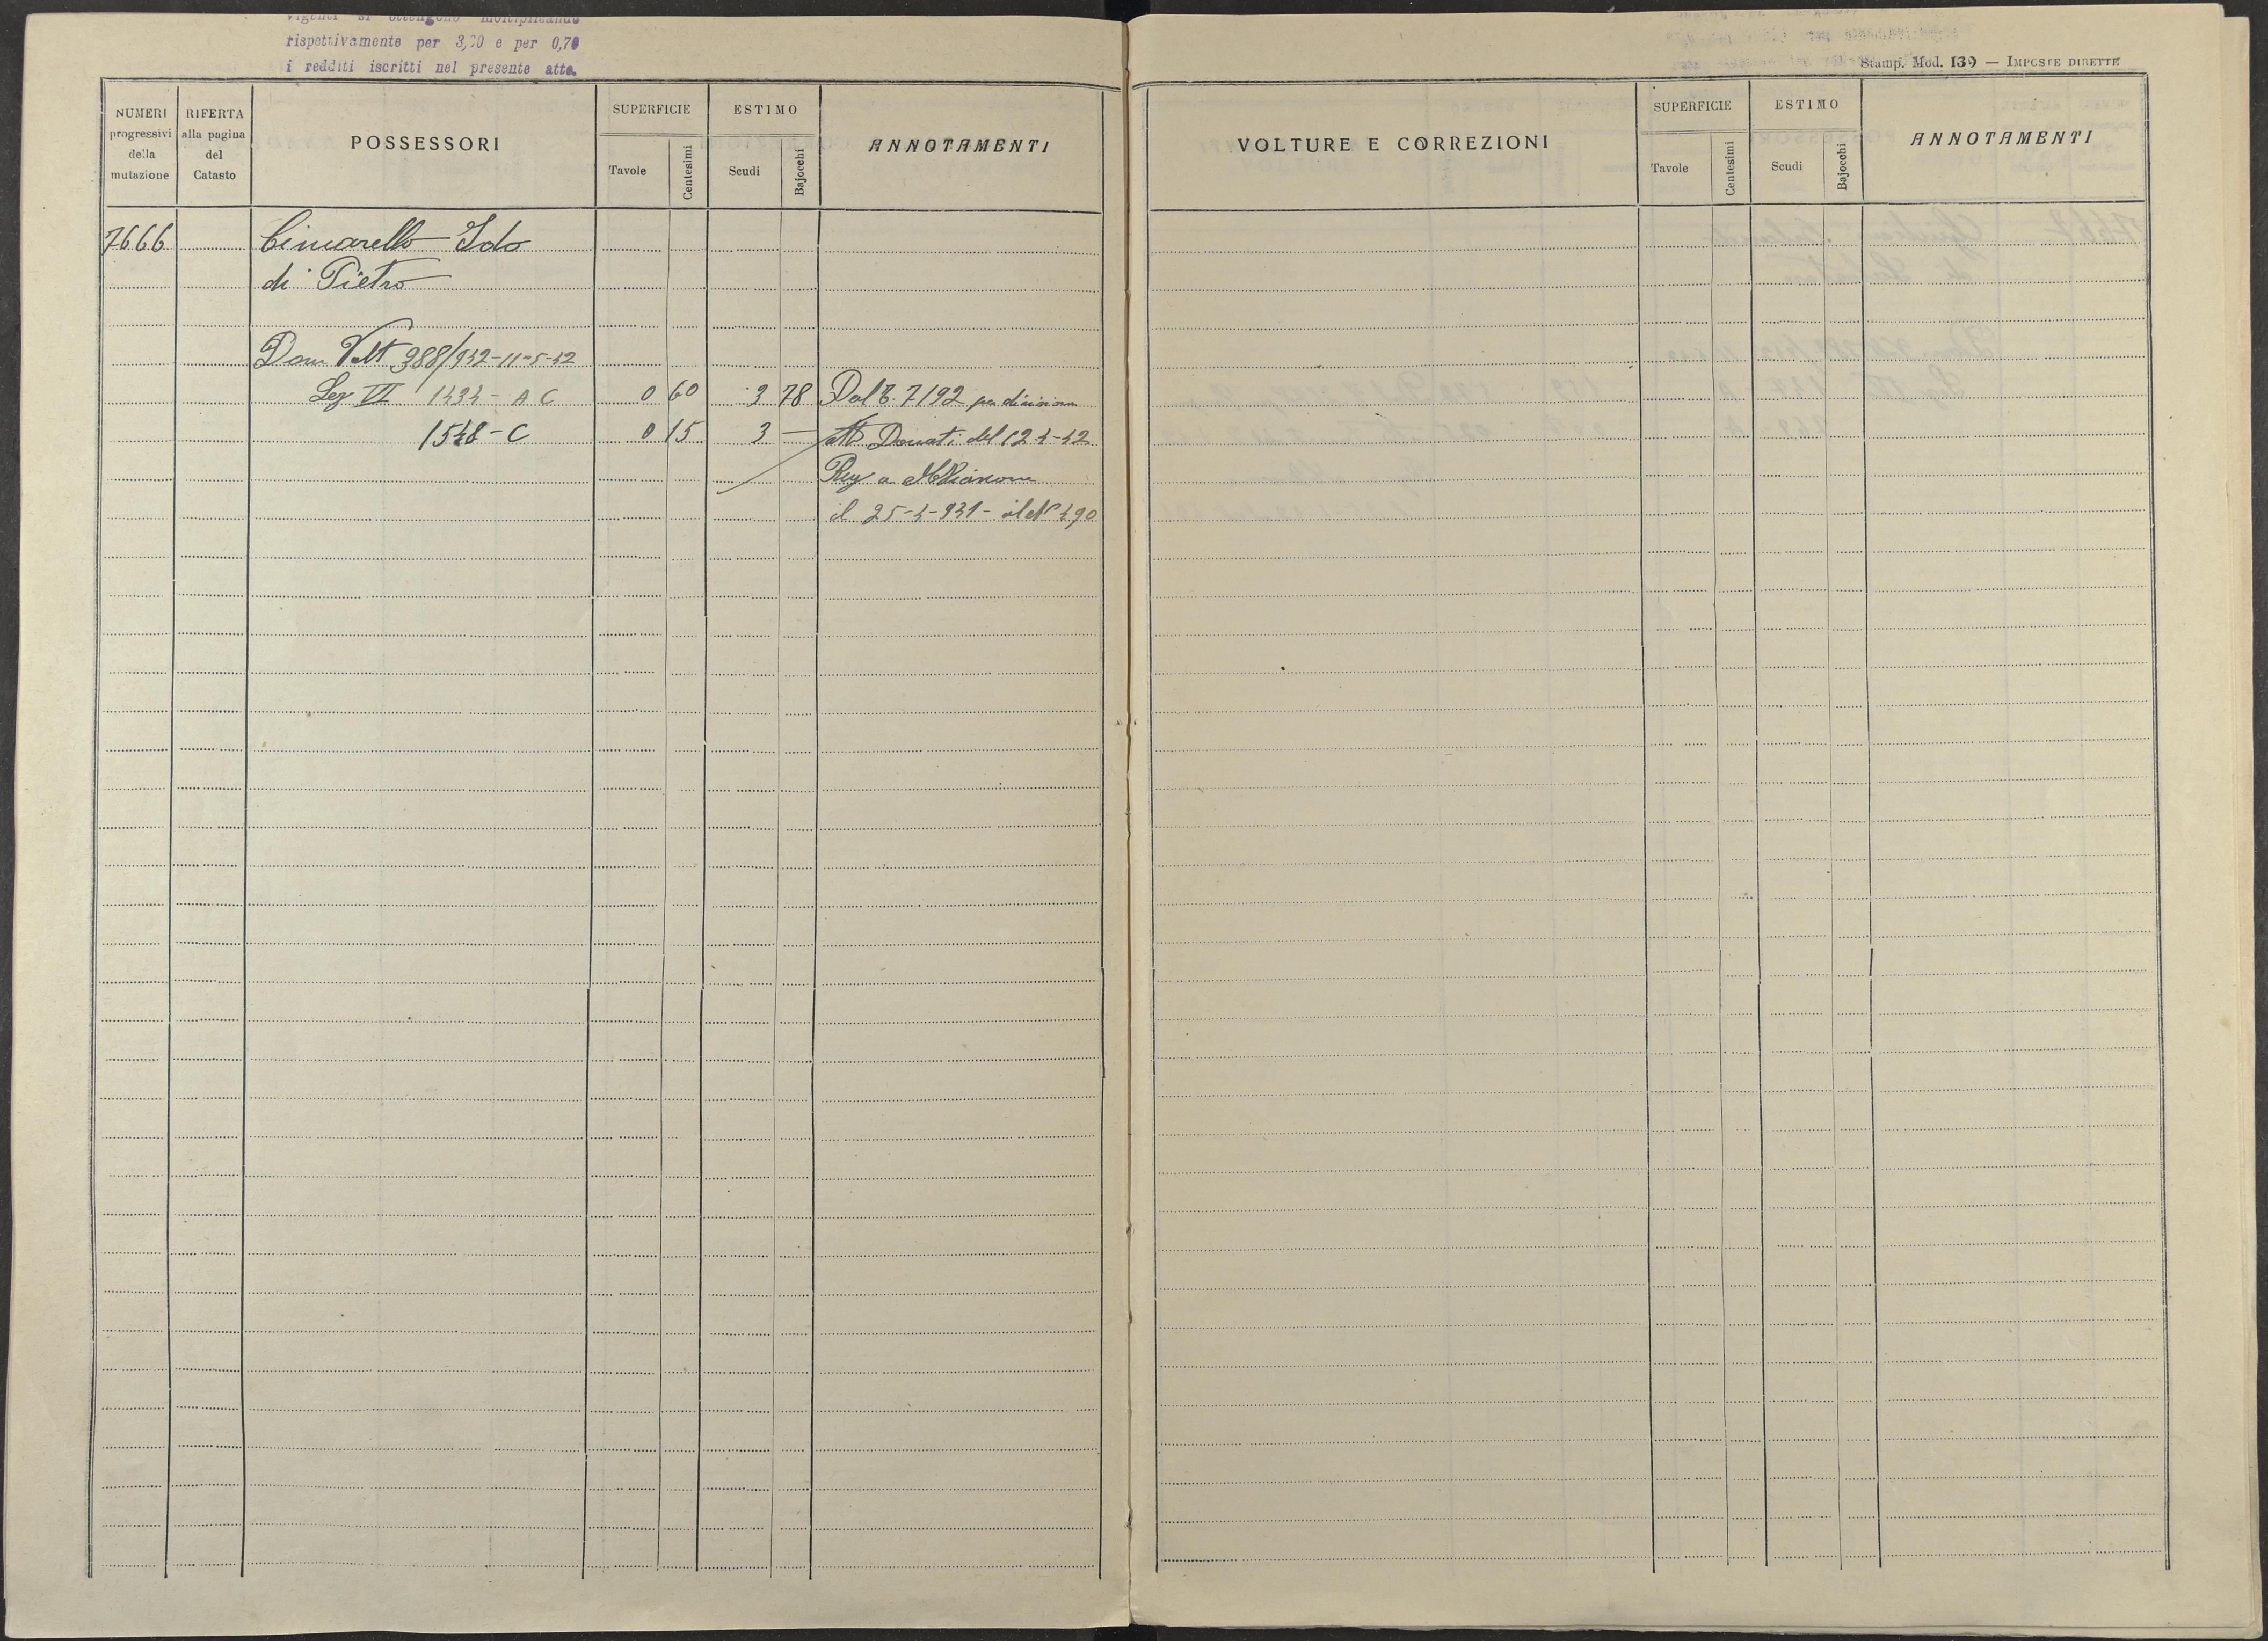 vigenti si ottengono moltiplicando
rispettivamente per 3,20 e per 0,70
i redditi iscritti nel presente atto.
Stamp. Mod. 139 — IMPOSTE DIRETTE
NUMERI progressivi della mutazione
RIFERTA alla pagina del Catasto
POSSESSORI
SUPERFICIE
Tavole
Centesimi
ESTIMO
Scudi
Bajocchi
ANNOTAMENTI
VOLTURE E CORREZIONI
SUPERFICIE
Tavole
Centesimi
ESTIMO
Scudi
Bajocchi
ANNOTAMENTI
7666 Cimarello Ido
di Pietro
Dom Volt 388/942-11-5-42
Sez VI 1434 - A C 0 60 3 78 Dal C. 7192 per divisione
1548 - C 0 15 3 — Atto Donati del 12-4-42
Reg a
il 25-4-941 - al N° 490